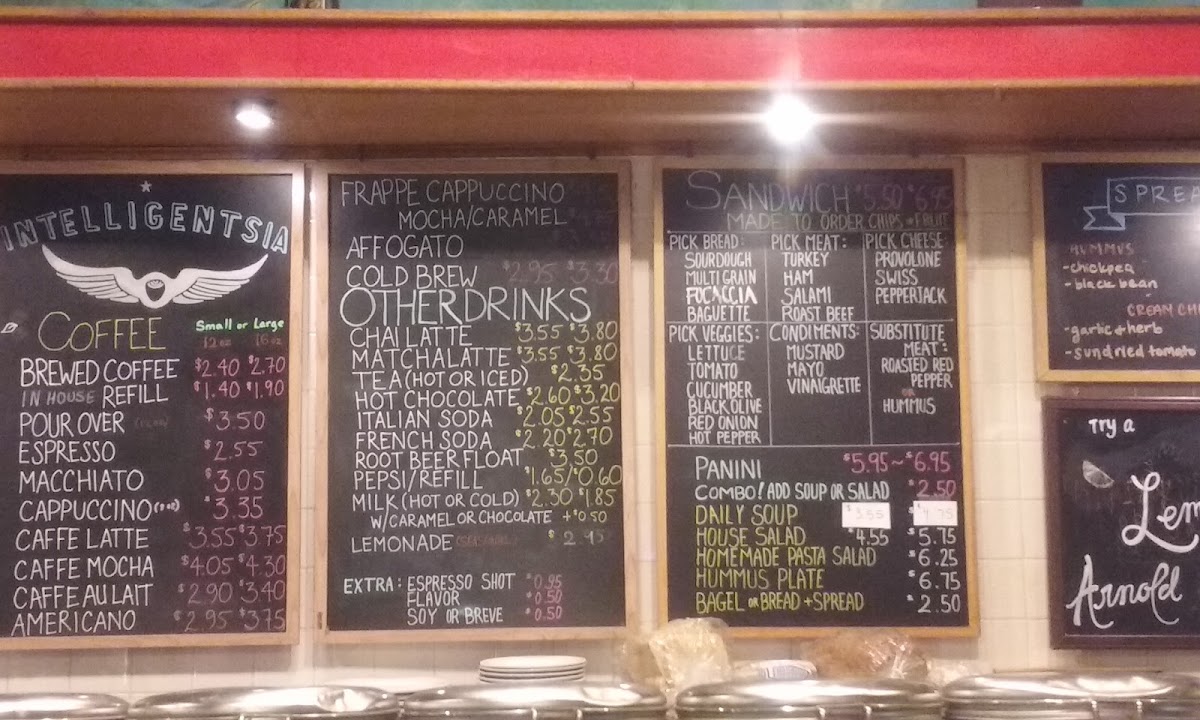 INTELLIGENTSIA
COFFEE Small or Large
12oz 16oz
BREWED COFFEE $2.40 $2.70
IN HOUSE REFILL $1.40 $1.90
POUR OVER $3.50
ESPRESSO $2.55
MACCHIATO $3.05
CAPPUCCINO $3.35
CAFFE LATTE $3.55 $3.75
CAFFE MOCHA $4.05 $4.30
CAFFE AU LAIT $2.90 $3.40
AMERICANO $2.95 $3.75
FRAPPE CAPPUCCINO
MOCHA/CARAMEL
AFFOGATO
COLD BREW $2.95 $3.30
OTHER DRINKS
CHAI LATTE $3.55 $3.80
MATCHA LATTE $3.55 $3.80
TEA (HOT OR ICED) $2.35
HOT CHOCOLATE $2.60 $3.20
ITALIAN SODA $2.05 $2.55
FRENCH SODA $2.20 $2.70
ROOT BEER FLOAT $3.50
PEPSI/REFILL $1.65/$0.60
MILK (HOT OR COLD) $2.30 $1.85
W/CARAMEL OR CHOCOLATE +$0.50
LEMONADE $2.95
EXTRA: ESPRESSO SHOT $0.95
FLAVOR $0.50
SOY OR BREVE $0.50
SANDWICH $5.50 $6.95
MADE TO ORDER CHIPS or FRUIT
PICK BREAD:
SOURDOUGH
MULTI GRAIN
FOCACCIA
BAGUETTE
PICK MEAT:
TURKEY
HAM
SALAMI
ROAST BEEF
PICK CHEESE:
PROVOLONE
SWISS
PEPPERJACK
PICK VEGGIES:
LETTUCE
TOMATO
CUCUMBER
BLACK OLIVE
RED ONION
HOT PEPPER
CONDIMENTS:
MUSTARD
MAYO
VINAIGRETTE
SUBSTITUTE
MEAT:
ROASTED RED
PEPPER
OR
HUMMUS
PANINI $5.95~$6.95
COMBO! ADD SOUP OR SALAD $2.50
DAILY SOUP $3.55 $4.75
HOUSE SALAD $4.55 $5.75
HOMEMADE PASTA SALAD $6.25
HUMMUS PLATE $6.75
BAGEL OR BREAD + SPREAD $2.50
SPREA
HUMMUS
-chickpea
-black bean
CREAM CH
-garlic & herb
-sundried tomato
Try a
Lem
Arnold